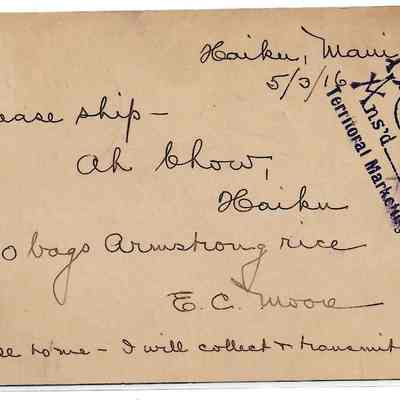 Haiku, Maui
5/3/16
ease ship -
Ah Chow,
Haiku
0 bags Armstrong rice
E. C. Moore
se to me - I will collect & transmit
Ans'd
Territoral Marketing